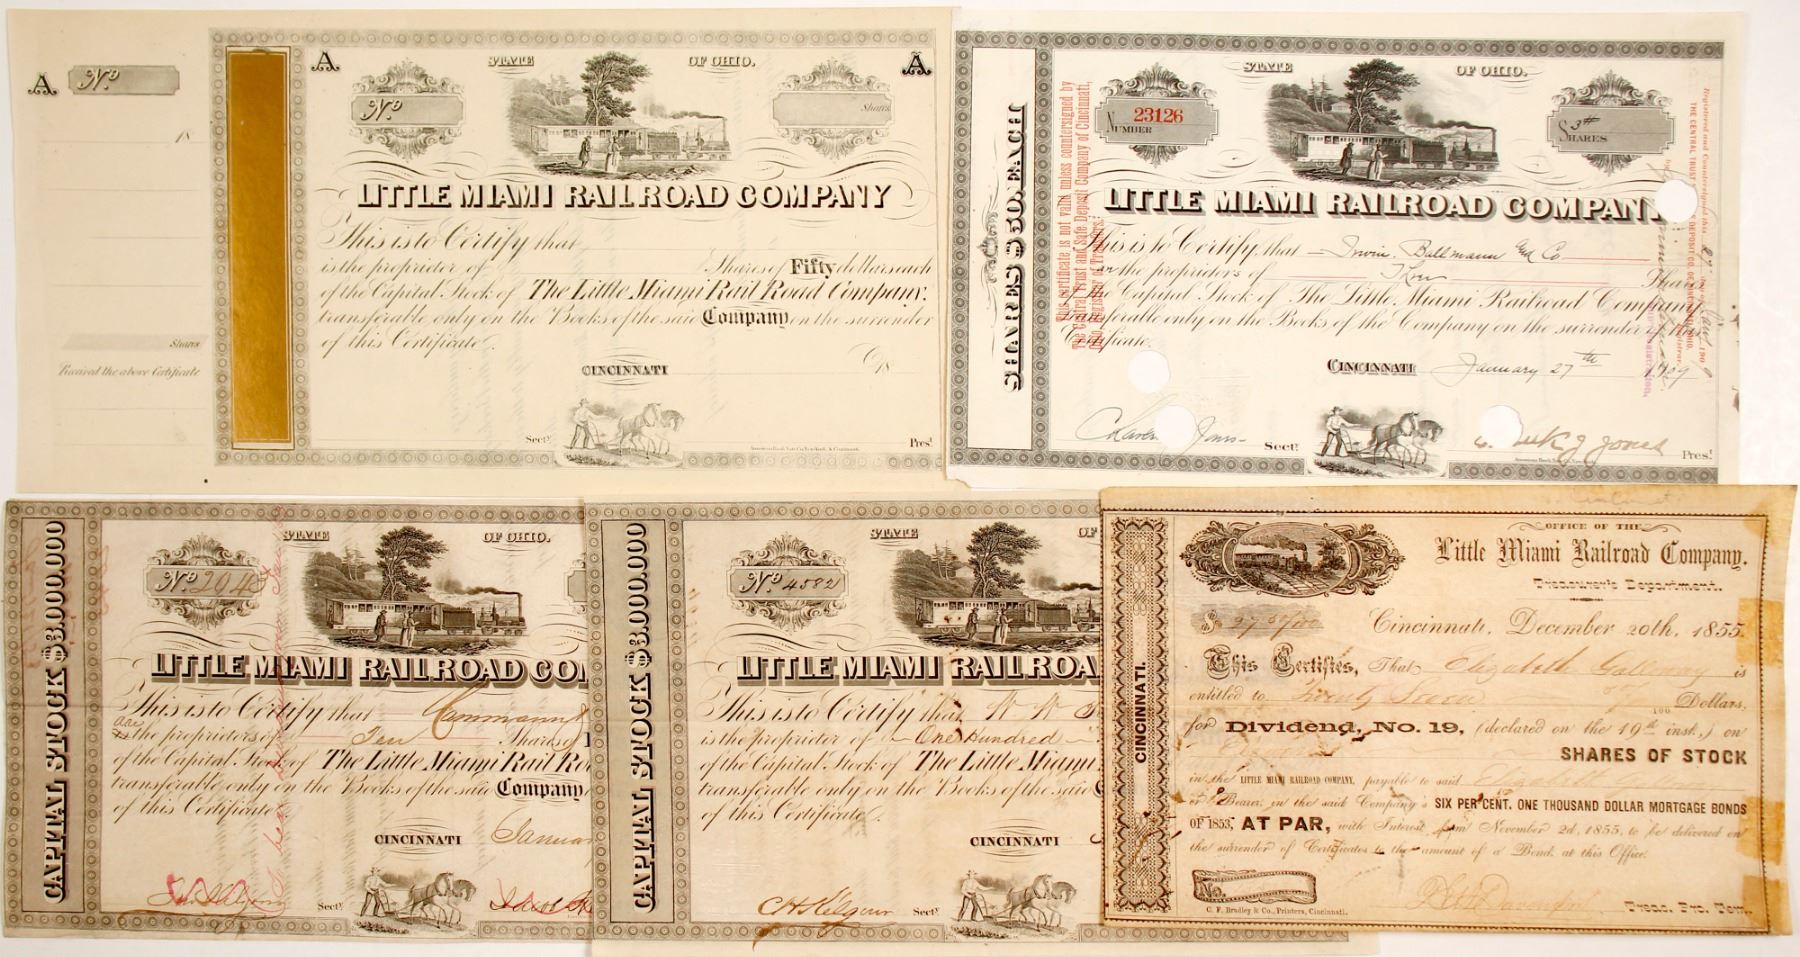 A
No
18
Shares
Received the above Certificate
A
A
STATE OF OHIO.
No
Shares
LITTLE MIAMI RAILROAD COMPANY
This is to Certify that
is the proprietor of Shares of Fifty dollars each
of the Capital Stock of The Little Miami Rail Road Company.
transferable only on the Books of the said Company on the surrender
of this Certificate.
CINCINNATI 18
Secy. Prest.
SHARES $50. EACH
This certificate is not valid unless countersigned by
The Central Trust and Safe Deposit Company of Cincinnati,
Ohio, Registrar of Transfers.
STATE OF OHIO.
23126
NUMBER
3
SHARES
LITTLE MIAMI RAILROAD COMPANY
This is to Certify, that Irwin, Ballmann and Co
the proprietors of Shares
of the Capital Stock of The Little Miami Railroad Company
transferable only on the Books of the Company on the surrender of this
Certificate.
CINCINNATI January 27th 1909
Secy. Jones Prest.
Registered and Countersigned this
THE CENTRAL TRUST
CAPITAL STOCK $3,000,000
STATE OF OHIO.
No 2043
LITTLE MIAMI RAILROAD CO
This is to Certify that
are the proprietors of Ten Shares of
of the Capital Stock of The Little Miami Rail Ro
transferable only on the Books of the said Company
of this Certificate
CINCINNATI Januar
Secy.
CAPITAL STOCK $3.000.000
STATE OF
No 4582
LITTLE MIAMI RAILROA
This is to Certify that W W
is the proprietor of One Hundred
of the Capital Stock of The Little Miami
transferable only on the Books of the said
of this Certificate.
CINCINNATI
C H Kilgour Secy.
CINCINNATI.
OFFICE OF THE
Little Miami Railroad Company.
Treasurer's Department.
$ 27 50/100
Cincinnati, December 20th, 1855.
This Certifies, That Elizabeth Galloway is
entitled to Twenty Seven 50/100 Dollars,
for Dividend, No. 19, (declared on the 19th inst.,) on
SHARES OF STOCK
in the LITTLE MIAMI RAILROAD COMPANY, payable to said Elizabeth
or Bearer, in the said Company's SIX PER CENT. ONE THOUSAND DOLLAR MORTGAGE BONDS
OF 1853, AT PAR, with Interest from November 2d, 1855, to be delivered on
the surrender of Certificates to the amount of a Bond, at this Office.
No.
C. F. Bradley & Co., Printers, Cincinnati.
Treas. Pro. Tem.